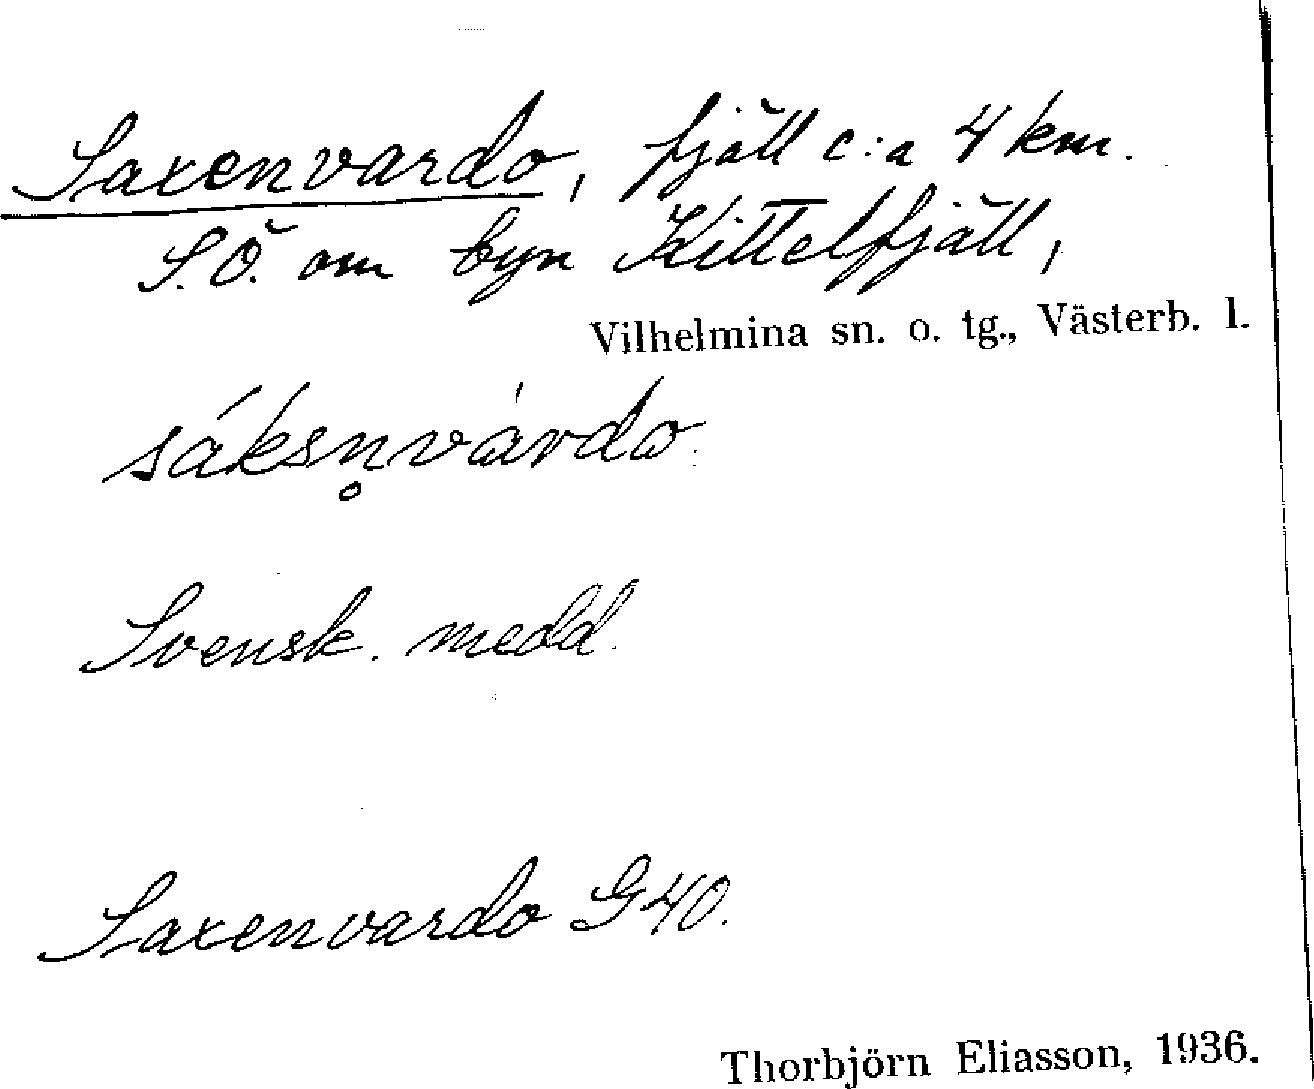 Saxenvardo, fjäll c:a 4 km.
S.Ö. om byn Kittelfjäll,
Vilhelmina sn. o. tg., Västerb. l.
sáksn̥várdo.
Svensk. medd.
Saxenvardo G40.
Thorbjörn Eliasson, 1936.